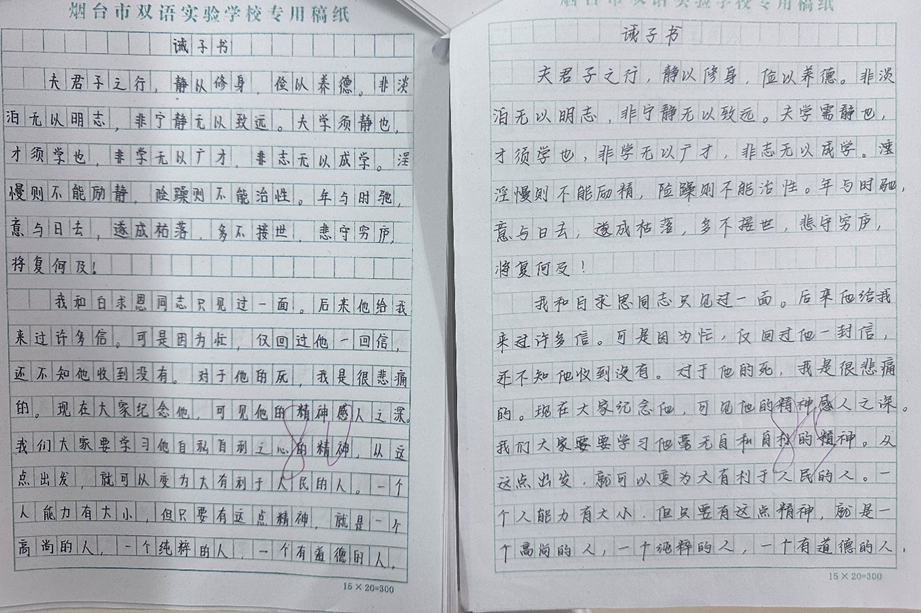 烟台市双语实验学校专用稿纸
诫子书
夫君子之行，静以修身，俭以养德。非淡
泊无以明志，非宁静无以致远。夫学须静也，
才须学也，非学无以广才，非志无以成学。淫
慢则不能励静，险躁则不能治性。年与时驰，
意与日去，遂成枯落，多不接世，悲守穷庐，
将复何及！
我和白求恩同志只见过一面。后来他给我
来过许多信。可是因为忙，仅回过他一回信，
还不知他收到没有。对于他的死，我是很悲痛
的。现在大家纪念他，可见他的精神感人之深。
我们大家要学习他自私自利之心的精神，从这
点出发，就可以变为大有利于人民的人。一个
人能力有大小，但只要有这点精神，就是一个
高尚的人，一个纯粹的人，一个有道德的人，
15×20=300
烟台市双语实验学校专用稿纸
诫子书
夫君子之行，静以修身，俭以养德。非淡
泊无以明志，非宁静无以致远。夫学需静也，
才须学也，非学无以广才，非志无以成学。淫
淫慢则不能励精，险躁则不能治性。年与时驰，
意与日去，遂成枯落，多不接世，悲守穷庐，
将复何及！
我和白求恩同志只见过一面。后来他给我
来过许多信。可是因为忙，仅回过他一封信，
还不知他收到没有。对于他的死，我是很悲痛
的。现在大家纪念他，可见他的精神感人之深。
我们大家要要学习他毫无自私自利的精神。从
这点出发，就可以变为大有利于人民的人。一
个人能力有大小，但只要有这点精神，就是一
个高尚的人，一个纯粹的人，一个有道德的人，
15×20=300